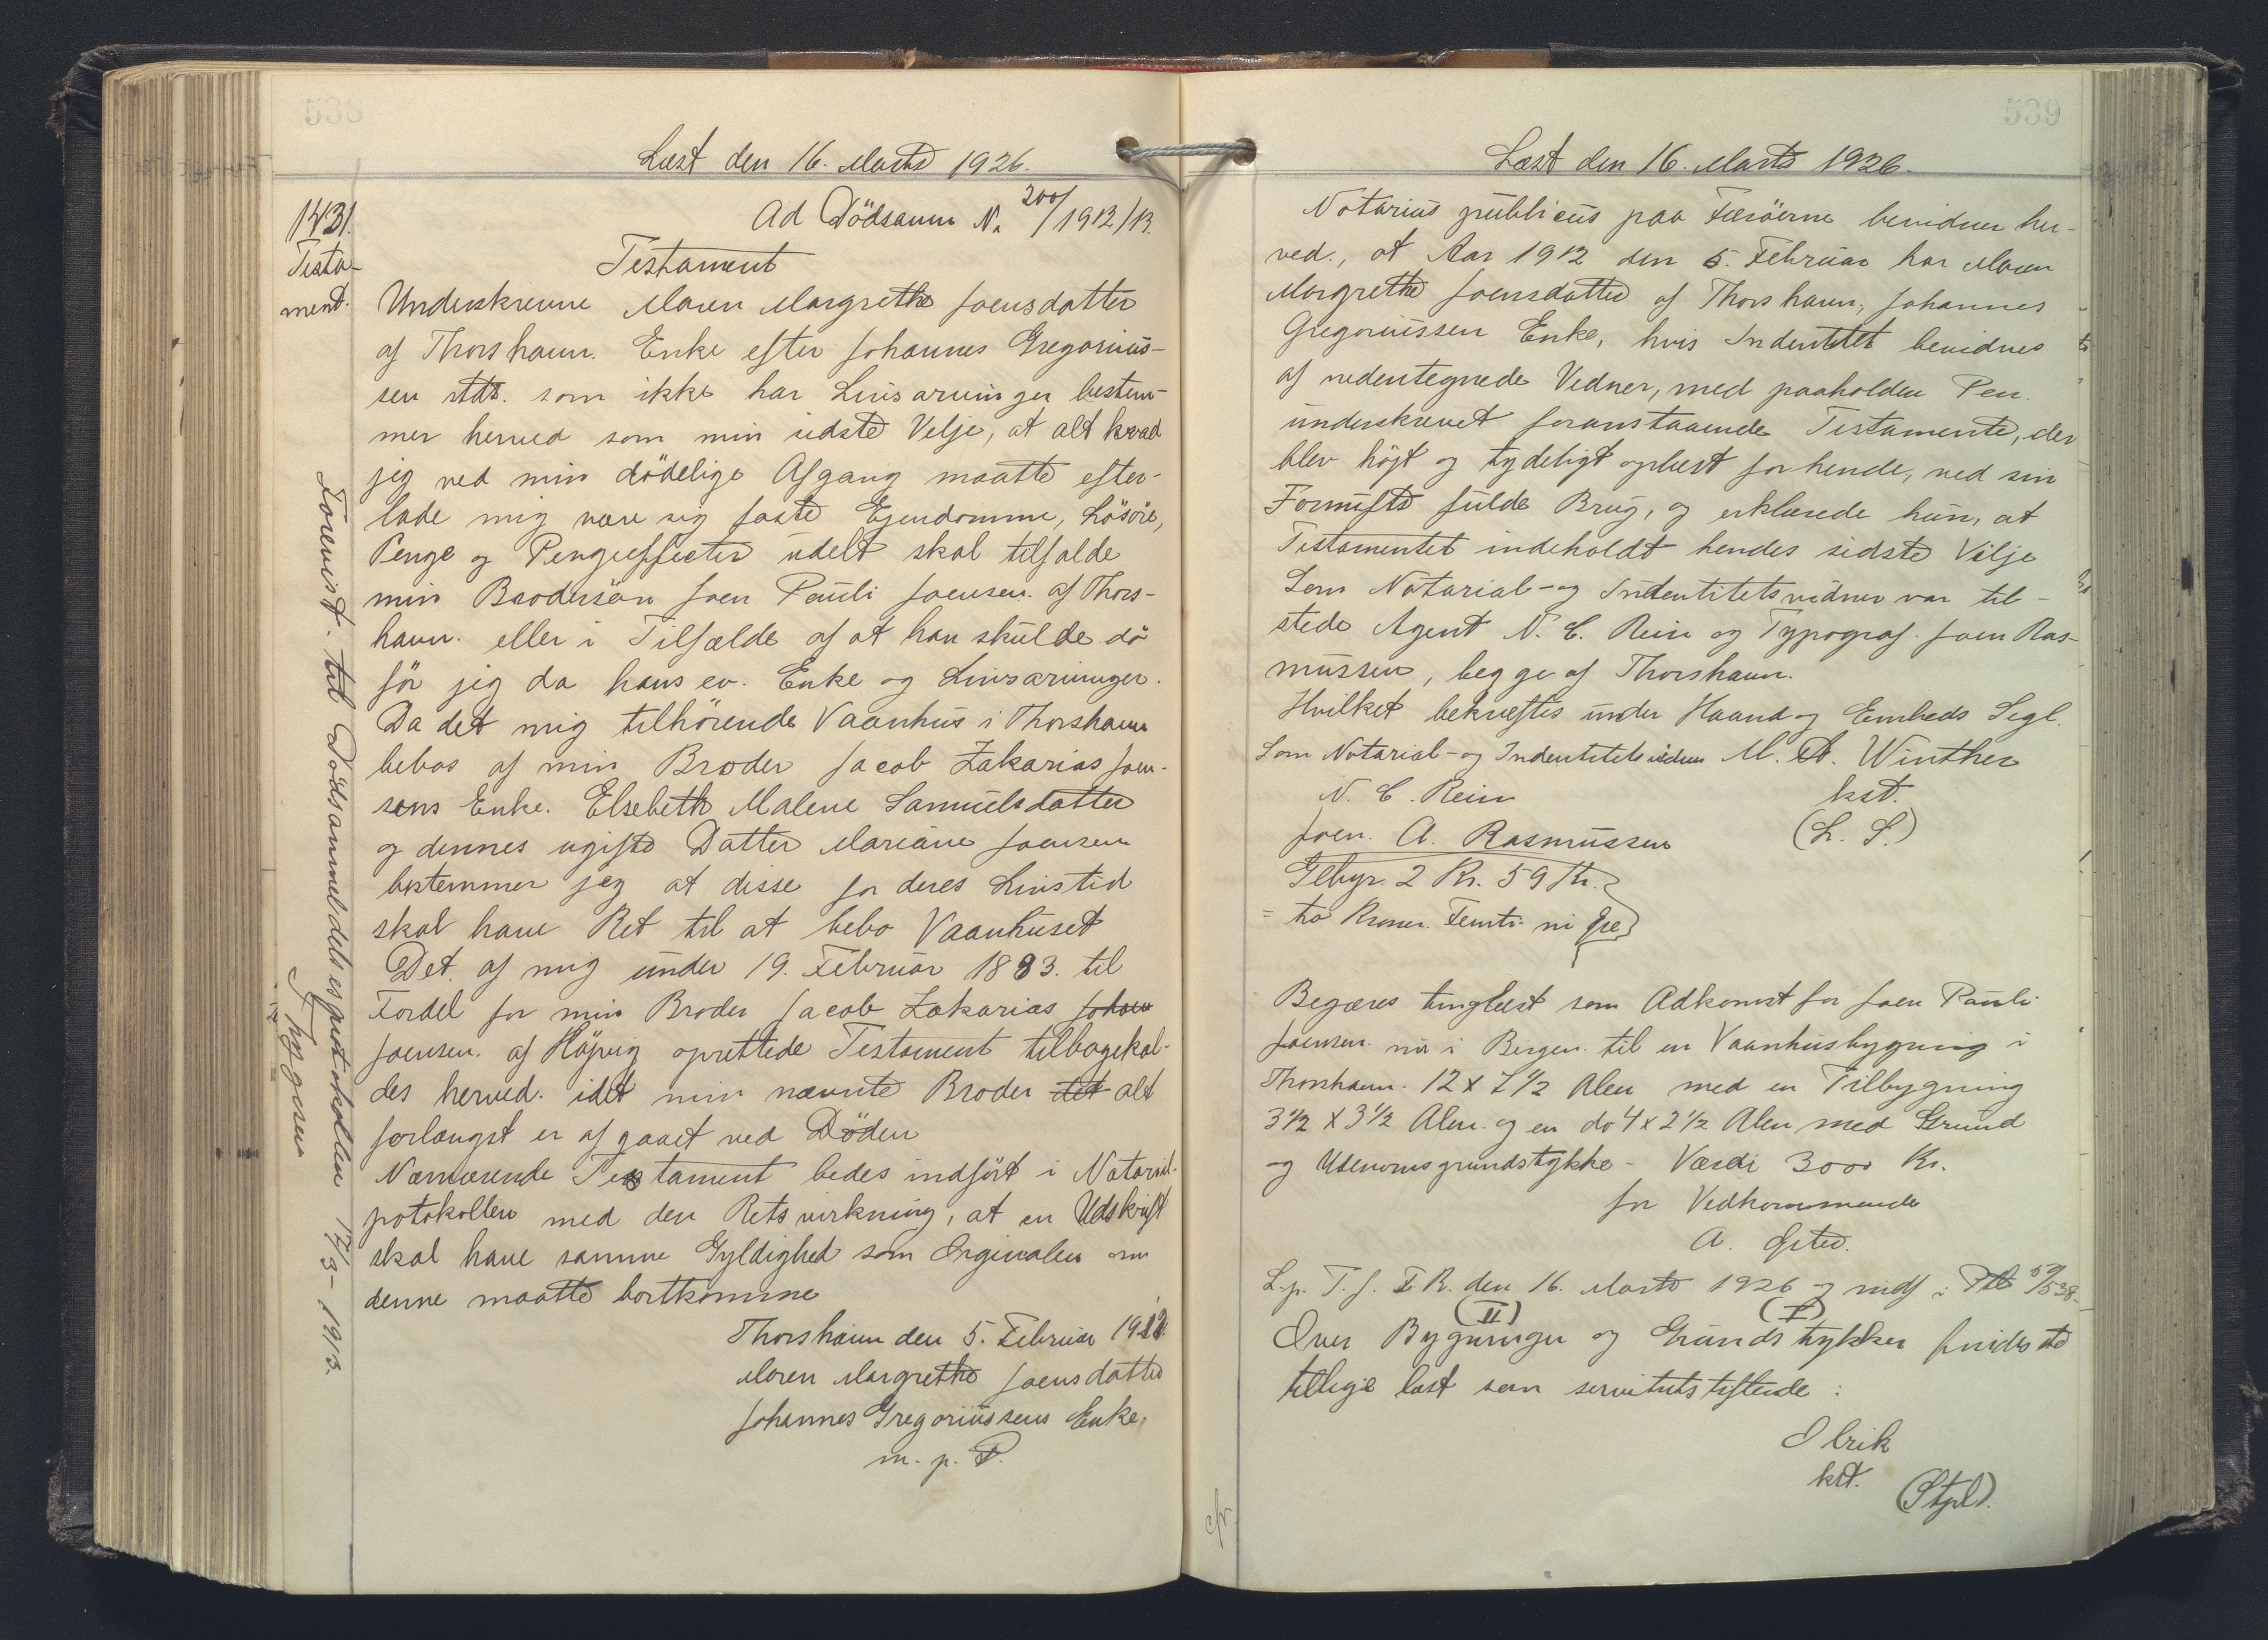 538
Læst den 16. Marts 1926.
Ad Dödsanm N. 200/1912/13.
1431.
Testa-
ment.
Testament
Underskrevne Maren Margrethe Joensdatter
af Thorshavn. Enke efter Johannes Gregorius-
sen stds. som ikke har Livsarvinger bestem-
mer herved som min sidste Velje, at alt hvad
jeg ved min dödelige Afgang maatte efter-
lade mig være sig faste Ejendomme, Lösöre,
Penge og Pengeeffecter udelt skal tilfalde
min Brodersön Joen Pauli Joensen. af Thors-
havn. eller i Tilfælde af at han skulde dö
för jeg da hans ev. Enke og Livsarvinger.
Da det mig tilhörende Vaanhus i Thorshavn
bebos af min Broder Jacob Zakarias Joen-
sens Enke. Elsebeth Malene Samuelsdatter
og dennes ugifte Datter Mariane Joensen
bestemmer jeg at disse for deres Livstid
skal have Ret til at bebo Vaanhuset
Det. af mig under 19. Februar 1883. til
Fordel for min Broder Jacob Zakarias Johan
Joensen. af Höjvig oprettede Testament tilbagekal-
des herved. idet min nævnte Broder det alt
forlængst er afgaaet ved Döden
Nærværende Testament bedes indfört i Notarial-
potokollen med den Retsvirkning, at en Udskrift
skal have samme Gyldighed som Orginalen om
denne maatte bortkomme
Thorshavn den 5. Februar 1912
Maren Margrethe Joensdatter
Johannes Gregoriussens Enke.
m. p. P.
Forevist. til Dödsanmeldelsesprotokollen 17/3-1913.
539
Læst den 16. Marts 1926.
Notarius publicus paa Færöerne bevidner her-
ved., at Aar 1912 den 5. Februar har Maren
Margrethe Joensdatter af Thorshavn, Johannes
Gregoriussen Enke, hvis Indentitet bevidnes
af nedentegnede Vidner, med paaholden Pen.
underskrevet foranstaaende Testamente, der
blev höjt og tydeligt oplæst for hende, ved sin
Fornufts fulde Brug, og erklærede hun, at
Testamentet indeholdt hendes sidste Vilje
Som Notarial- og Indentitetsvidner var til-
stede Agent N. C. Rein og Typograf. Joen Ras-
mussen, begge af Thorshavn.
Hvilket bekræftes under Haand og Embeds Segl.
Som Notarial- og Indentitetsvidner M. A. Winther
N. C. Rein kst.
Joen. A. Rasmussen (L. S.)
Gebyr. 2 Kr. 59 Th.
= to Kroner. Femti. ni Øre
Begæres tinglæst som Adkomst for Joen Pauli
Joensen. nu i Bergen. til en Vaanhusbygning i
Thorshavn. 12 x 7 1/2 Alen med en Tilbygning
3 1/2 x 3 1/2 Alen. og en do 4 x 2 1/2 Alen med Grund
og Udenomsgrundstykke - Værdi 3000 Kr.
for Vedkommende
A.
L.p. T. f. F R. den 16. Marts 1926 og indf i
(II) (I)
Over Bygninger og Grundstykker findes
tillige læst som servitutstiftende:
Olrik
kst. (Stpl).
cfr.